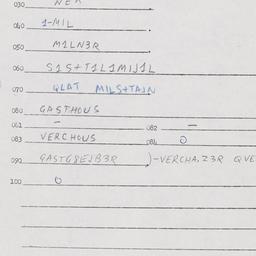 030
040 1-MIL
050 M1LN3R
060 S1S+T1L1MIJ1L
070 QLAT MILS+TAJN
080 GASTHOUS
081 - 082 -
083 VERCHOUS 084 0
090 )-VERCHA,Z3R QVE
100 0